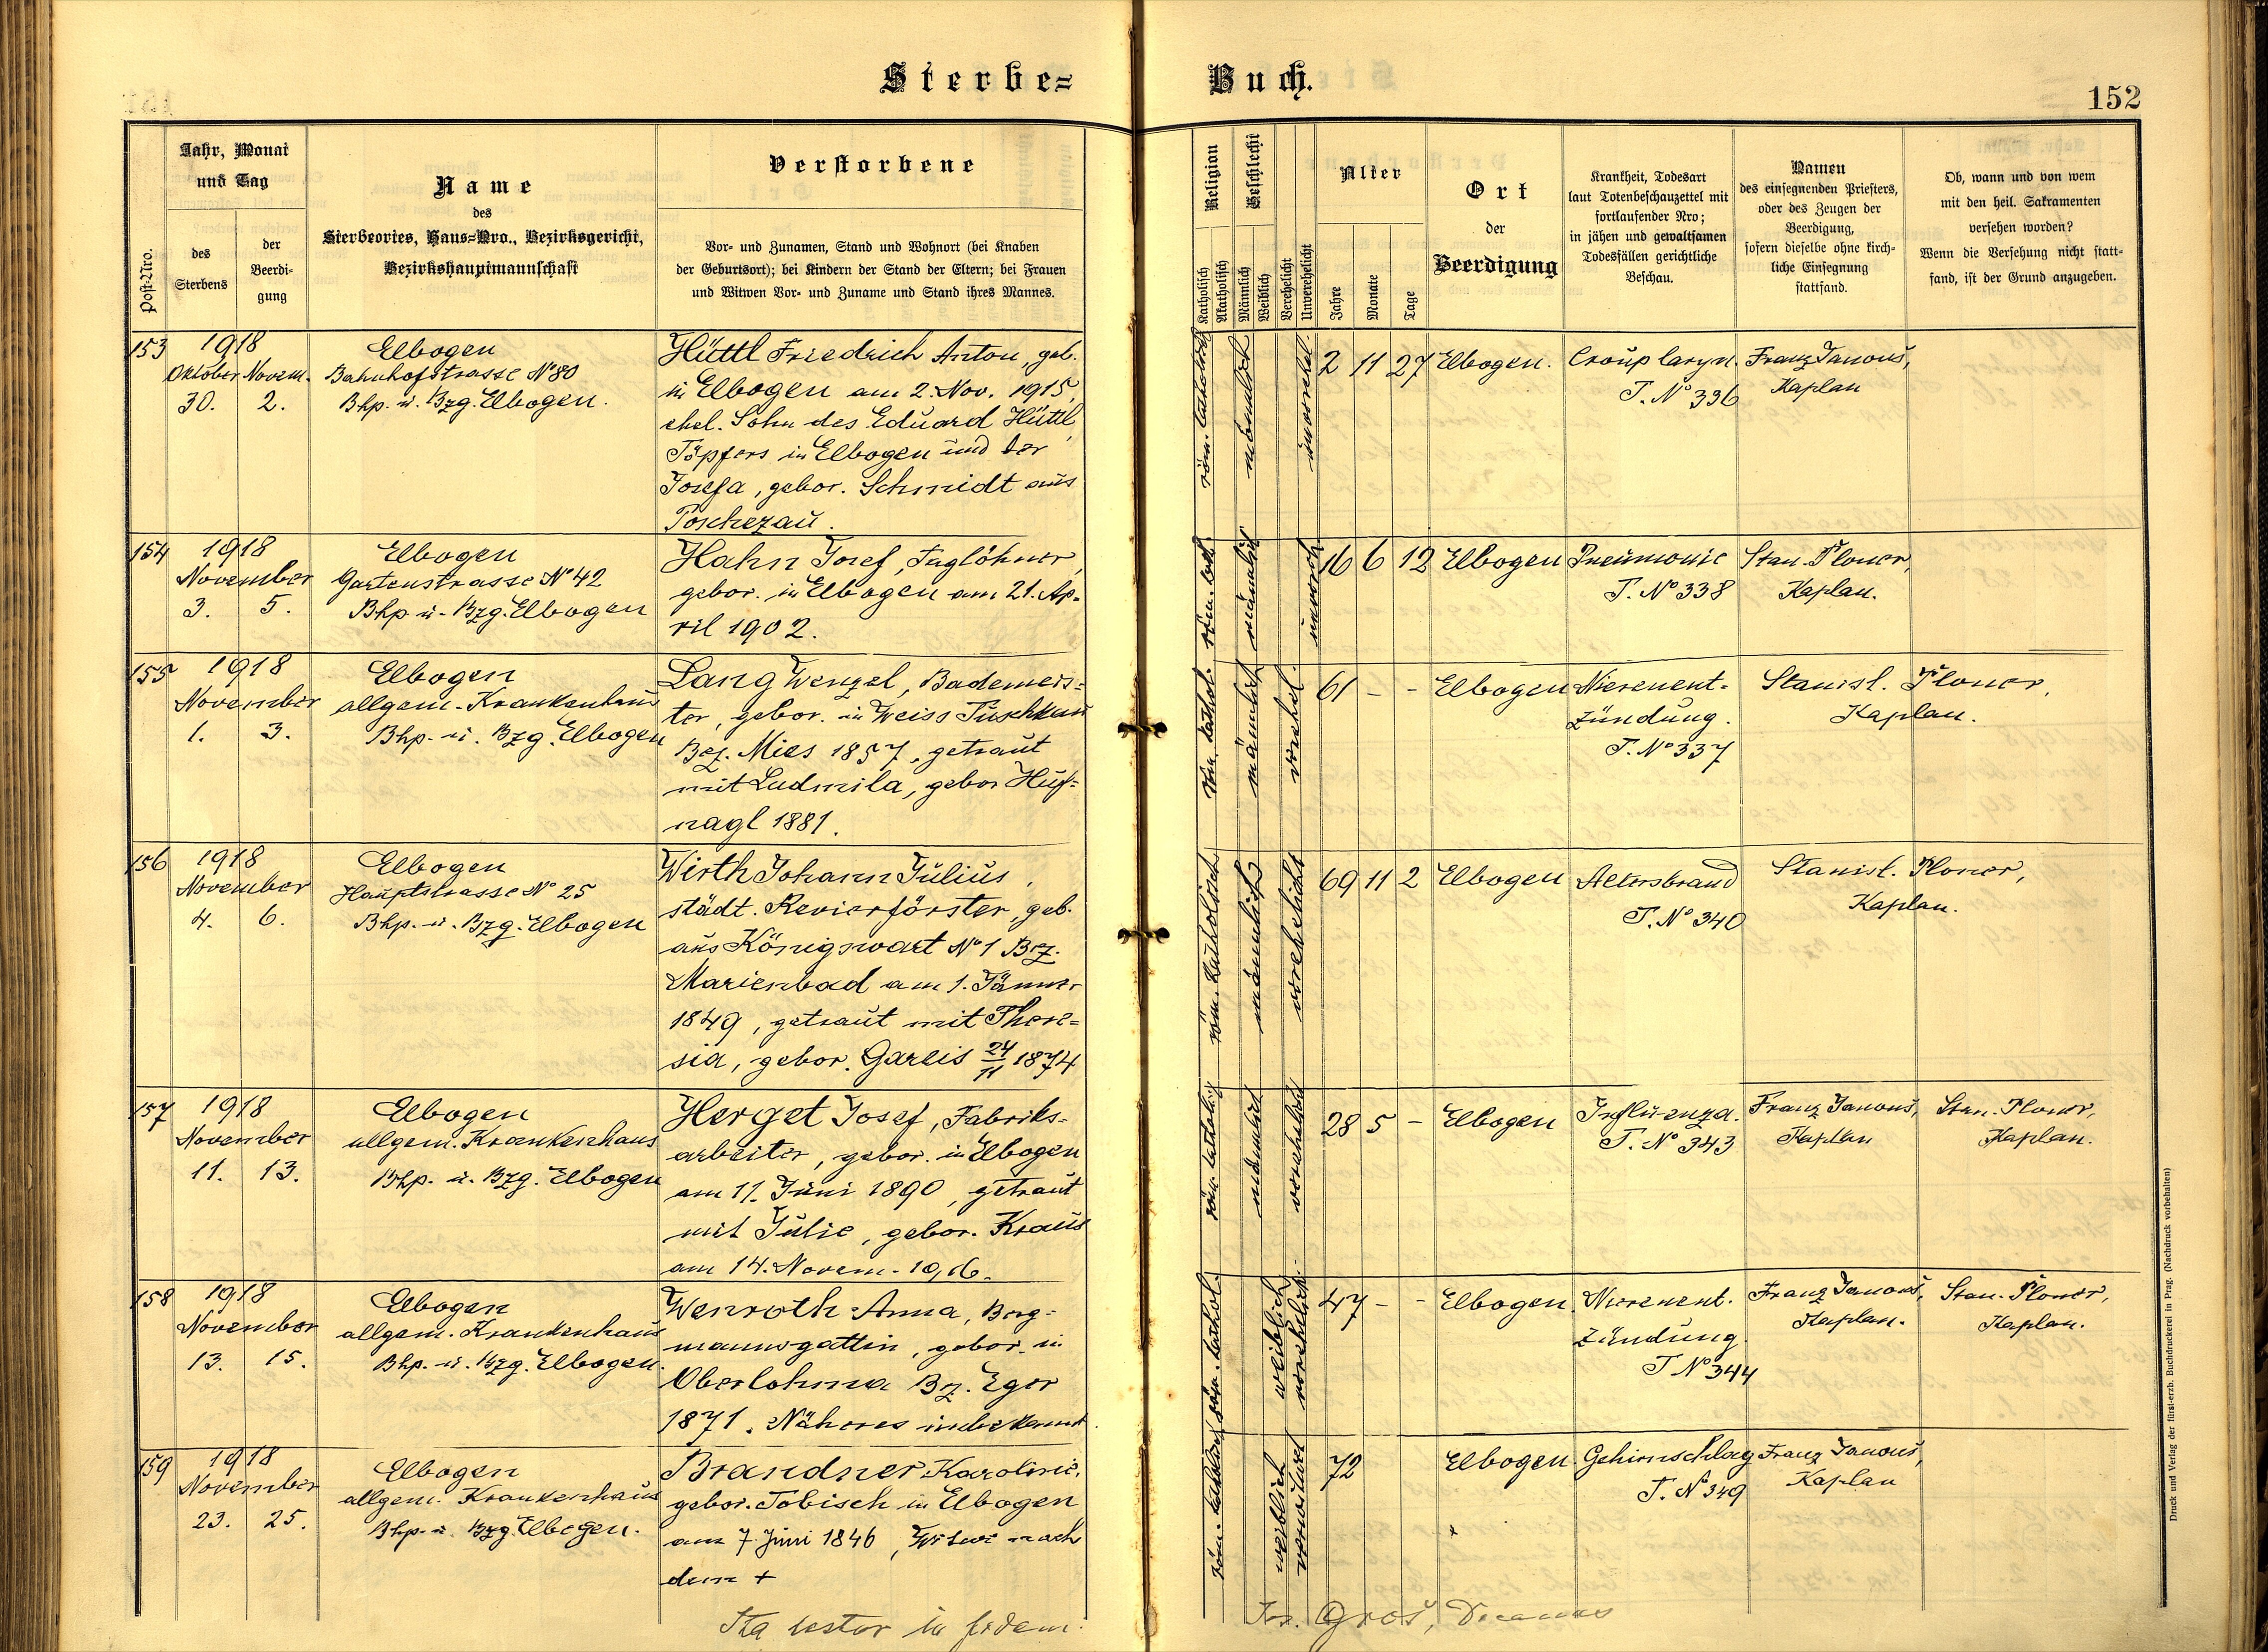 Sterbe=
Buch.
152
Post-Nro.
Jahr, Monat
und Tag
des
Sterbens
der
Beerdi-
gung
Name
des
Sterbeortes, Haus=Nro., Bezirksgericht,
Bezirkshauptmannschaft
Verstorbene
Vor- und Zunamen, Stand und Wohnort (bei Knaben
der Geburtsort); bei Kindern der Stand der Eltern; bei Frauen
und Witwen Vor- und Zuname und Stand ihres Mannes.
Religion
Katholisch
Akatholisch
Geschlecht
Männlich
Weiblich
Verehelicht
Unverehelicht
Alter
Jahre
Monate
Tage
Ort
der
Beerdigung
Krankheit, Todesart
laut Totenbeschauzettel mit
fortlaufender Nro;
in jähen und gewaltsamen
Todesfällen gerichtliche
Beschau.
Namen
des einsegnenden Priesters,
oder des Zeugen der
Beerdigung,
sofern dieselbe ohne kirch-
liche Einsegnung
stattfand.
Ob, wann und von wem
mit den heil. Sakramenten
versehen worden?
Wenn die Versehung nicht statt-
fand, ist der Grund anzugeben.
153
1918
Oktober Novem.
30. 2.
Elbogen
Bahnhofstrasse No 80
Bhp. u. Bzg. Elbogen.
Hüttl Friedrich Anton, geb.
in Elbogen am 2. Nov. 1915,
ehel. Sohn des Eduard Hüttl,
Töpfers in Elbogen und der
Josefa, gebor. Schmidt aus
Poschezau.
röm. katholisch
männlich
unverehel.
2 11 27
Elbogen.
Croup laryn.
T. No 336
Franz Janouš,
Kaplan
154
1918
November
3. 5.
Elbogen
Gartenstrasse No 42
Bhp. u. Bzg. Elbogen
Hahn Josef, Taglöhner,
gebor. in Elbogen am 21. Ap-
ril 1902.
röm. kath.
männlich
unvereh.
16 6 12
Elbogen
Pneumonie
T. No 338
Stan. Ploner,
Kaplan.
155
1918
November
1. 3.
Elbogen
allgem. Krankenhaus
Bhp. u. Bzg. Elbogen
Lang Wenzel, Bademeis-
ter, gebor. in Weiss Tuschkau
Bez. Mies 1857, getraut
mit Ludmila, gebor Huf-
nagl 1881.
röm. kathol.
männlich
verehel.
61 - -
Elbogen
Nierenent-
zündung.
T. No 337
Stanisl. Ploner,
Kaplan.
156
1918
November
4. 6.
Elbogen
Hauptstrasse No 25
Bhp. u. Bzg. Elbogen
Wirth Johann Julius,
städt. Revierförster, geb.
aus Königswart No 1 Bez.
Marienbad am 1. Jänner
1849, getraut mit There-
sia, gebor. Gareis 24/11 1874
röm. katholisch
männlich
verehelicht
69 11 2
Elbogen
Altersbrand
T. No 340
Stanisl. Ploner,
Kaplan.
157
1918
November
11. 13.
Elbogen
allgem. Krankenhaus
Bhp. u. Bzg. Elbogen
Herget Josef, Fabriks-
arbeiter, gebor. in Elbogen
am 11. Juni 1890, getraut
mit Julie, gebor. Kraus
am 14. Novem.
röm. katholisch
männlich
verehelicht
28 5 -
Elbogen
Influenza.
T. No 343
Franz Janouš,
Kaplan
Stan. Ploner,
Kaplan.
158
1918
November
13. 15.
Elbogen
allgem. Krankenhaus
Bhp. u. Bzg. Elbogen.
Wenroth Anna, Berg-
mannsgattin, gebor. in
Oberlohma Bz. Eger
1871. Näheres unbekannt.
röm. kathol.
weiblich
verehelicht.
47 - -
Elbogen.
Nierenent-
zündung.
T No 344
Franz Janouš,
Kaplan.
Stan. Ploner,
Kaplan.
159
1918
November
23. 25.
Elbogen
allgem. Krankenhaus
Bhp. u. Bzg. Elbogen.
Brandner Karoline,
gebor. Tobisch in Elbogen
am 7. Juni 1846, Witwe nach
dem +
röm. kathol.
weiblich
verwitwet
72
Elbogen.
Gehirnschlag
T. No 349
Franz Janouš,
Kaplan
Ita testor in fidem:
Jos. Groš, Decanus
Druck und Verlag der fürst-erzb. Buchdruckerei in Prag. (Nachdruck vorbehalten)